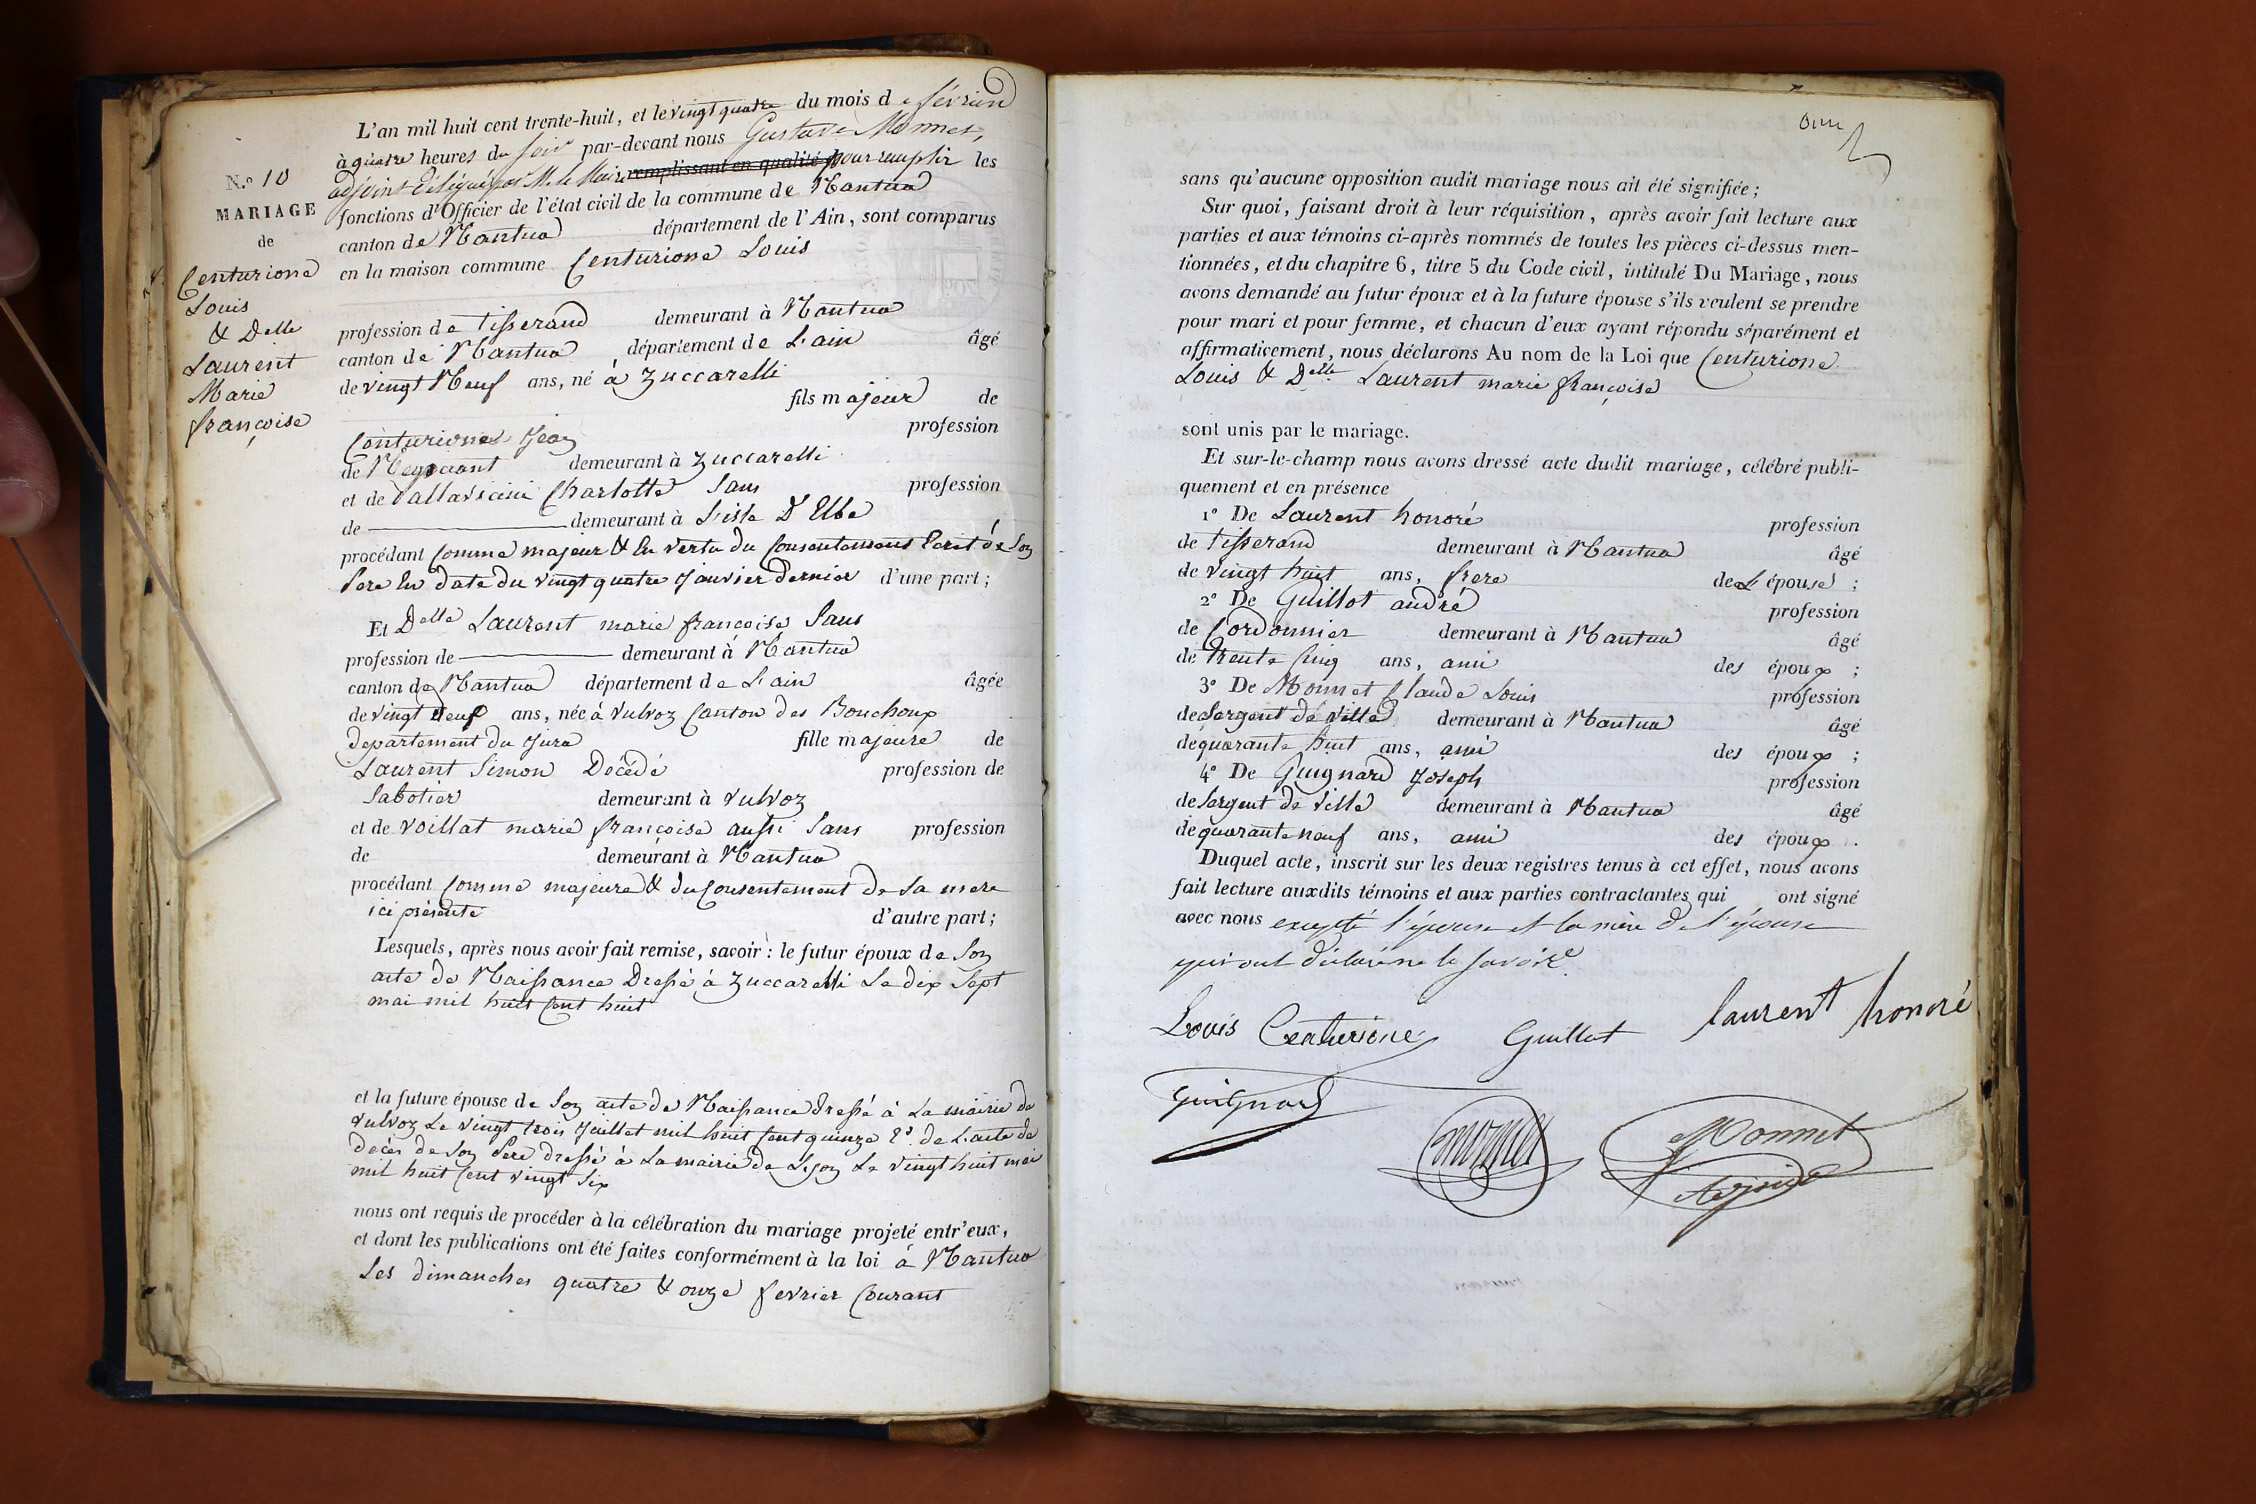 L'an mil huit cent trente-huit, et le vingt quatre du mois de février
à quatre heures du soir par-devant nous Gustave Monnet,
adjoint délégué par M. le Maire remplissant en qualité pour remplir les
fonctions d'Officier de l'état civil de la commune de Nantua
canton de Nantua département de l'Ain, sont comparus
en la maison commune Centurione Louis
N.º 10
MARIAGE
de
Centurione
Louis
& Delle
Laurent
Marie
françoise
profession de tisserand demeurant à Nantua
canton de Nantua département de L'ain âgé
de vingt Neuf ans, né à Zuccarelli
fils majeur de
Centurione Jean profession
de Negociant demeurant à Zuccarelli
et de Pallavicini Charlotte Sans profession
de demeurant à L'isle D'Elbe
procédant Comme majeur & En vertu du Consentement Ecrit de Son
Pere En date du vingt quatre Janvier dernier d'une part;
Et Delle Laurent marie françoise Sans
profession de demeurant à Nantua
canton de Nantua département de L'ain âgée
de vingt deux ans, née à Vulvoz Canton des Bouchoux
departement du Jura fille majeure de
Laurent Simon Décédé profession de
Sabotier demeurant à Vulvoz
et de Voillat marie françoise aussi Sans profession
de demeurant à Nantua
procédant Comme majeure & du Consentement de Sa mere
ici présente d'autre part;
Lesquels, après nous avoir fait remise, savoir: le futur époux de Son
acte de Naissance Dressé à Zuccarelli Le dix Sept
mai mil huit Cent huit
et la future épouse de Son acte de Naissance dressé à La mairie de
Vulvoz Le vingt trois Juillet mil huit Cent quinze 2º. de L'acte de
décès de Son Pere dressé à La mairie de Lyon Le vingt huit mai
mil huit Cent vingt Six
nous ont requis de procéder à la célébration du mariage projeté entr'eux,
et dont les publications ont été faites conformément à la loi à Nantua
Les dimanches quatre & onze fevrier Courant
sans qu'aucune opposition audit mariage nous ait été signifiée;
Sur quoi, faisant droit à leur réquisition, après avoir fait lecture aux
parties et aux témoins ci-après nommés de toutes les pièces ci-dessus men-
tionnées, et du chapitre 6, titre 5 du Code civil, intitulé Du Mariage, nous
avons demandé au futur époux et à la future épouse s'ils veulent se prendre
pour mari et pour femme, et chacun d'eux ayant répondu séparément et
affirmativement, nous déclarons Au nom de la Loi que Centurione
Louis & Delle Laurent marie françoise
sont unis par le mariage.
Et sur-le-champ nous avons dressé acte dudit mariage, célébré publi-
quement et en présence
1º De Laurent honoré profession
de tisserand demeurant à Nantua âgé
de vingt huit ans, frere de L'épouse;
2º De Guillot andré profession
de Cordonnier demeurant à Nantua âgé
de trente Cinq ans, ami des époux;
3º De Monnet Claude Louis profession
de Sergent de Ville demeurant à Nantua âgé
de quarante huit ans, ami des époux;
4º De Guignard Joseph profession
de Sergent de Ville demeurant à Nantua âgé
de quarante neuf ans, ami des époux.
Duquel acte, inscrit sur les deux registres tenus à cet effet, nous avons
fait lecture auxdits témoins et aux parties contractantes qui ont signé
avec nous excepté l'épouse et la mère de l'épouse
qui ont déclaré ne le savoir.
Louis Centurione Guillot laurent honoré
Guignard monnet Monnet
Adjoint